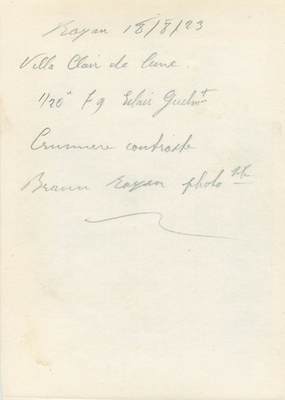 Royan 18/8/23
Villa Clair de lune.
1/20" F9 Eclair Guilmt
Crumiere contraste
Braun Royan photo